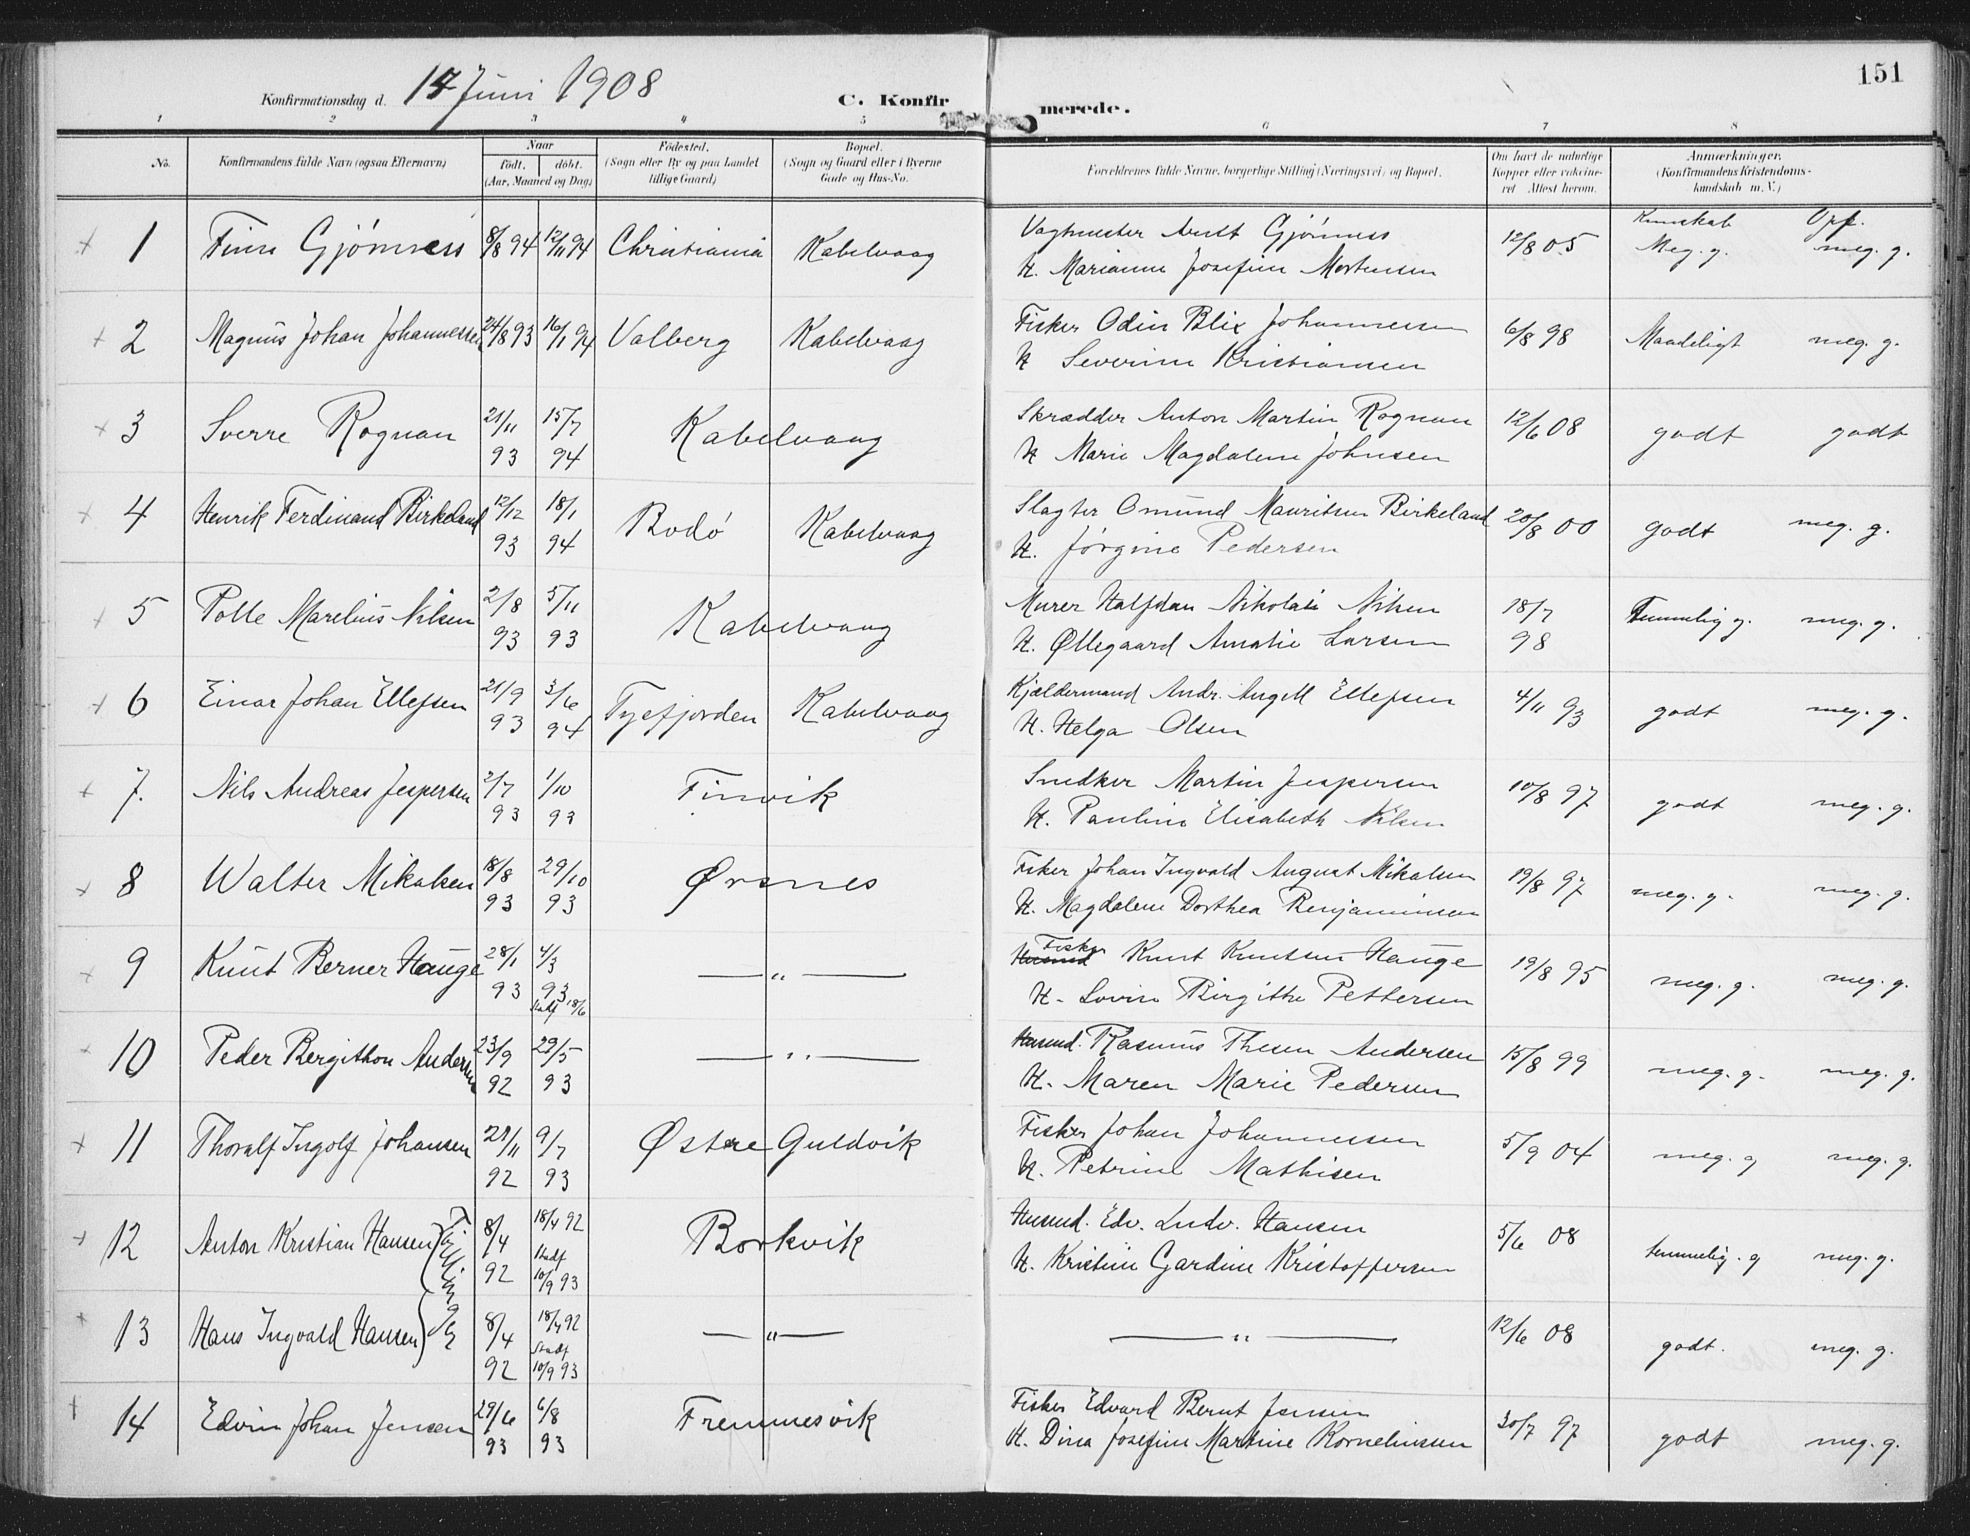 151
Konfirmationsdag d. 14 Juni 1908 C. Konfirmerede.
1 2 3 4 5 6 7 8
No. Konfirmandens fulde Navn (ogsaa Efternavn) Naar født. døbt. (Aar, Maaned og Dag) Fødested. (Sogn eller By og paa Landet tillige Gaard) Bopæl. (Sogn og Gaard eller i Byerne Gade og Hus-No. Forældrenes fulde Navne, borgerlige Stilling (Næringsvei) og Bopæl. Om havt de naturlige Kopper eller vaccineret Attest herom. Anmærkninger. (Konfirmandens Kristendomskundskab m. V.)
Kunskab Opf.
1 Finn Gjønness 8/8 94 12/11 94 Christiania Kabelvaag Vagtmester Gjønness 12/8 05 Meg. g. meg. g.
H. Marianne Josefine Mortensen
2 Magnus Johan Johannessen 24/8 93 16/1 94 Valberg Kabelvaag Fisker Odin Blix Johannessen 6/8 98 Maadeligt meg. g.
H Severine Kristiansen
3 Sverre Rognan 21/11 93 15/7 94 Kabelvaag Skrædder Anton Martin Rognan 12/6 08 godt godt
H Marie Magdalene Johnsen
4 Henrik Ferdinand Birkeland 12/12 93 18/1 94 Bodø Kabelvaag Slagter Omund Mauritsen Birkeland 20/8 00 godt meg. g.
H. Jørgine Pedersen
5 Polle Marelius Nilsen 2/8 93 5/11 93 Kabelvaag Murer Halfdan Nikolai Nilsen 18/7 98 Temmelig g. meg. g.
H. Øllegaard Amalie Larsen
6 Einar Johan Ellefsen 21/9 93 3/6 94 Tysfjorden Kabelvaag Kjældermand Andr. Ellefsen 4/11 93 godt meg. g.
H. Helga Olsen
7. Nils Andreas Jespersen 2/7 93 1/10 93 Finvik Snedker Martin Jespersen 10/8 97 godt meg. g.
H. Pauline Elisabeth Nilsen
8 Walter Mikalsen 18/8 93 29/10 93 Ørsnes Fisker Johan Ingvald August Mikalsen 19/8 97 meg. g. meg. g.
H. Magdalene Dorthea Benjaminsen
9 Knut Berner Hauge 28/1 93 4/3 93 Stadf 18/6 — " — Fisker Knut Knutsen Hauge 19/8 95 meg. g. meg. g.
H. Lovise Birgitte Pettersen
10 Peder Bergithon Andersen 23/9 92 29/5 93 — " — Husmd. Rasmus Thesen Andersen 15/8 99 meg. g. meg. g.
H. Maren Marie Pedersen
11 Thoralf Ingolf Johansen 21/11 92 9/7 93 Østre Guldvik Fisker Johan Johannessen 5/9 04 meg. g meg. g.
H. Petrine Mathisen
12 Anton Kristian Hansen (Tvillinger) 8/4 92 18/4 92 Stadf 10/9 93 Borkvik Husmd. Edv. Ludv. Hansen 5/6 08 temmelig. g meg. g.
H. Kristine Gardine Kristoffersen
13 Hans Ingvald Hansen 8/4 92 18/4 92 Stadf 10/9 93 — " — — " — 12/6 08 godt. meg. g.
14 Edvin Johan Jensen 29/6 93 6/8 93 Fremmesvik Fisker Edvard Bernt Jensen 30/7 97 godt meg. g.
H. Dina Josefine Martine Korneliussen